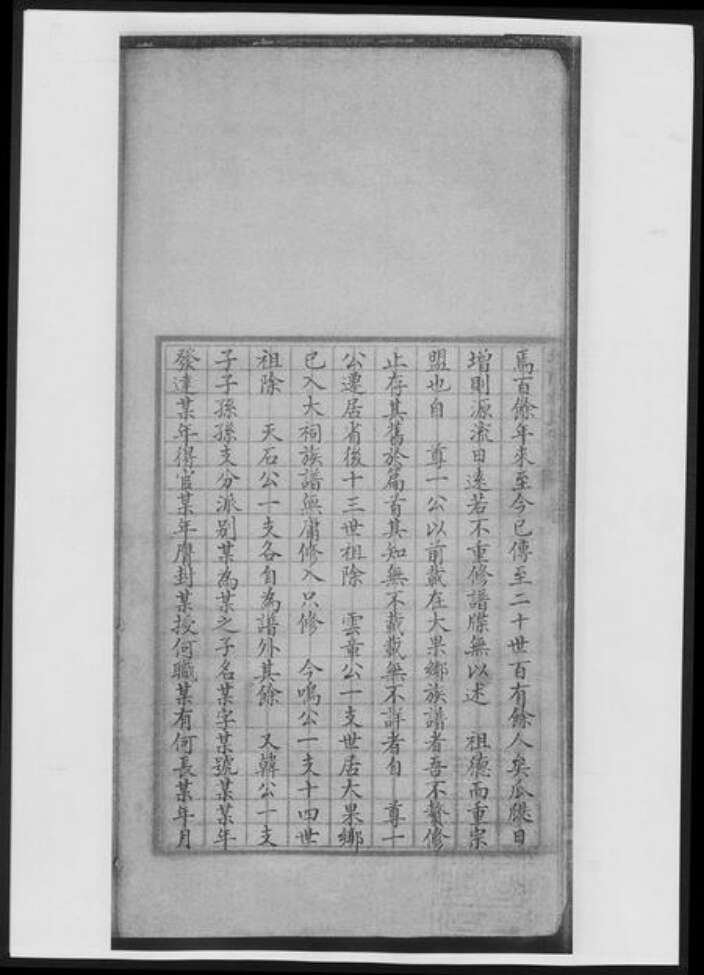 焉百餘年來至今已傳至二十世百有餘人矣瓜瓞日
增則源流日遠若不重修譜牒無以述 祖德而重宗
盟也自 尊一公以前載在大果鄉族譜者吾不贅修
止存其舊於篇首其知無不載載無不詳者自 尊一
公遷居省後十三世祖除 雲章公一支世居大果鄉
已入大祠族譜無庸修入只修 今鳴公一支十四世
祖除 天石公一支各自為譜外其餘 又韓公一支
子子孫孫支分派别某為某之子名某字某號某某年
發達某年得官某年膺封某授何職某有何長某年月